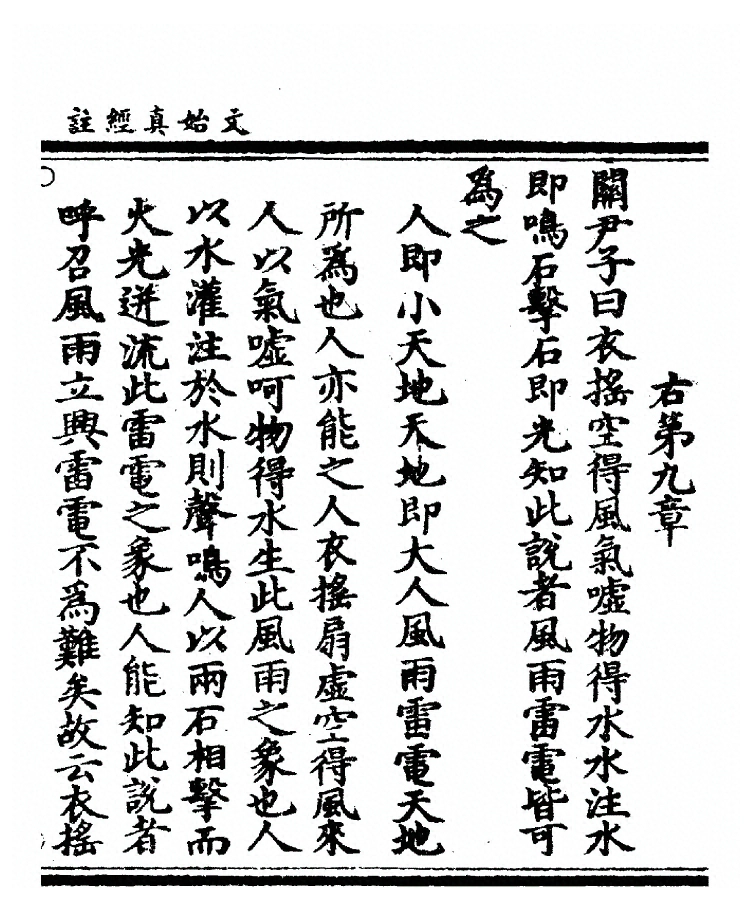 文始真經註
右第九章
關尹子曰衣搖空得風氣噓物得水水注水
即鳴石擊石即光知此說者風雨雷電皆可
為之
人即小天地天地即大人風雨雷電天地
所為也人亦能之人衣搖扇虛空得風來
人以氣噓呵物得水生此風雨之象也人
以水灌注於水則聲鳴人以兩石相擊而
火光迸流此雷電之象也人能知此說者
呼召風雨立興雷電不為難矣故云衣搖